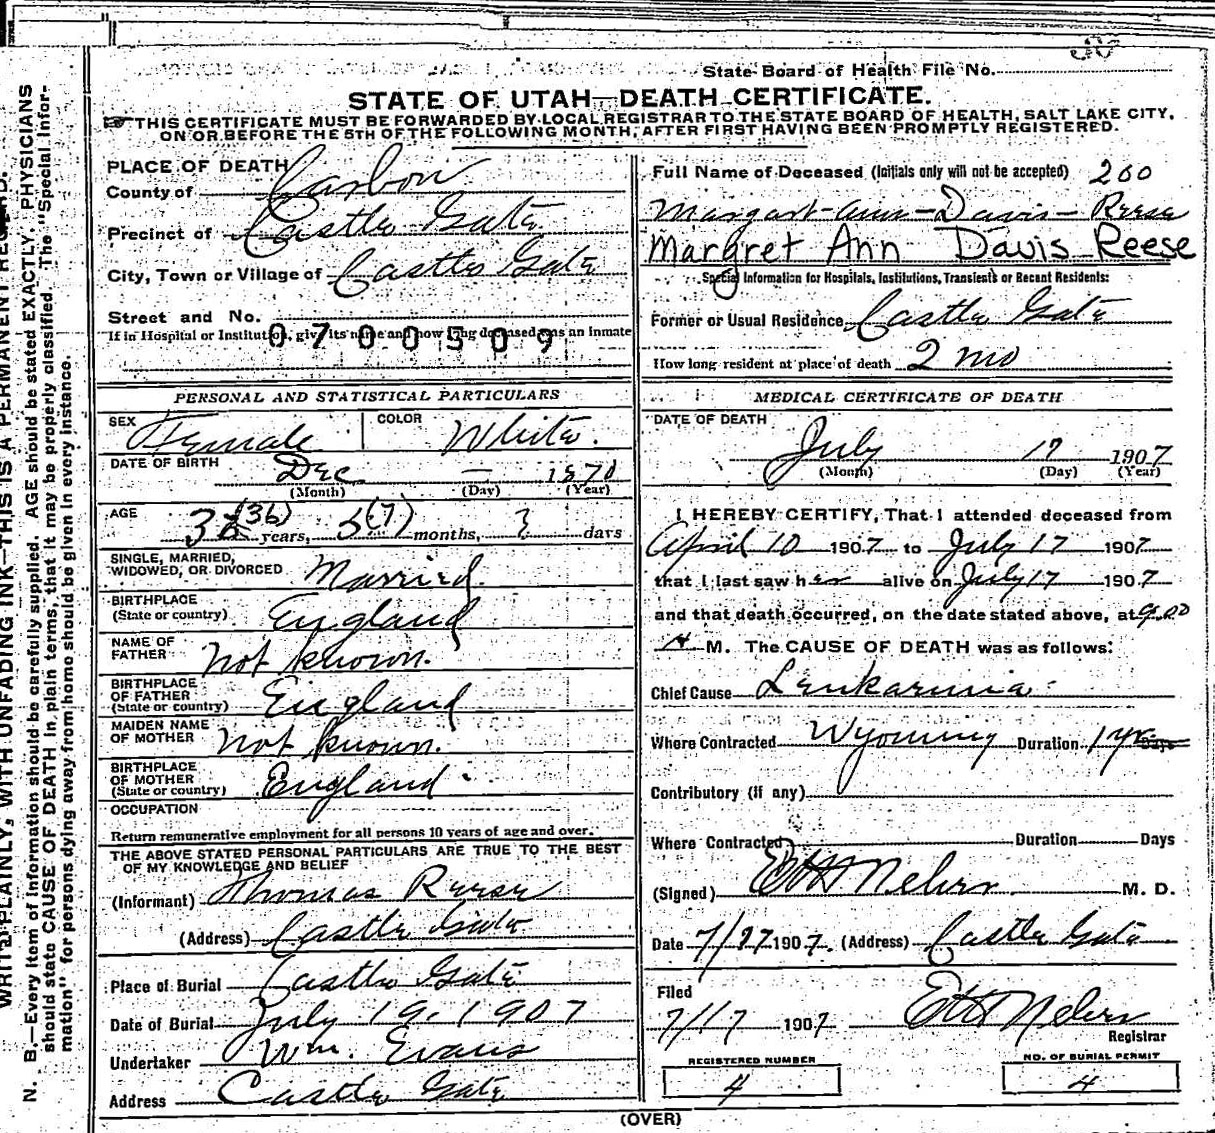 State Board of Health File No.
STATE OF UTAH—DEATH CERTIFICATE.
THIS CERTIFICATE MUST BE FORWARDED BY LOCAL REGISTRAR TO THE STATE BOARD OF HEALTH, SALT LAKE CITY,
ON OR BEFORE THE 5TH OF THE FOLLOWING MONTH, AFTER FIRST HAVING BEEN PROMPTLY REGISTERED.
PLACE OF DEATH
County of Carbon
Precinct of Castle Gate
City, Town or Village of Castle Gate
Street and No.
If in Hospital or Institution, give its name and how long deceased was an inmate
0700509
Full Name of Deceased (Initials only will not be accepted) 200
Margart-Ann-Davis-Reese
Margret Ann Davis Reese
Special Information for Hospitals, Institutions, Transients or Recent Residents:
Former or Usual Residence Castle Gate
How long resident at place of death 2 mo
PERSONAL AND STATISTICAL PARTICULARS
SEX Female COLOR White.
DATE OF BIRTH Dec — 1870
(Month) (Day) (Year)
AGE 36 (36) years, 5 (7) months, ? days
SINGLE, MARRIED,
WIDOWED, OR DIVORCED Married.
BIRTHPLACE
(State or country) England
NAME OF
FATHER Not known.
BIRTHPLACE
OF FATHER
(State or country) England
MAIDEN NAME
OF MOTHER Not known.
BIRTHPLACE
OF MOTHER
(State or country) England.
OCCUPATION
Return remunerative employment for all persons 10 years of age and over.
THE ABOVE STATED PERSONAL PARTICULARS ARE TRUE TO THE BEST
OF MY KNOWLEDGE AND BELIEF
(Informant) Thomas Reese
(Address) Castle Gate
Place of Burial Castle Gate
Date of Burial July 19, 1907
Undertaker Wm. Evans
Address Castle Gate
MEDICAL CERTIFICATE OF DEATH
DATE OF DEATH
July 17 1907
(Month) (Day) (Year)
I HEREBY CERTIFY, That I attended deceased from
April 10 1907 to July 17 1907
that I last saw her alive on July 17 1907
and that death occurred, on the date stated above, at 9.00
A M. The CAUSE OF DEATH was as follows:
Chief Cause Leukaemia
Where Contracted Wyoming Duration 1 yr Days
Contributory (if any)
Where Contracted Duration Days
(Signed) M. D.
Date 7/27 1907. (Address) Castle Gate
Filed
7/17 1907
Registrar
REGISTERED NUMBER
4
NO. OF BURIAL PERMIT
4
(OVER)
WRITE PLAINLY, WITH UNFADING INK—THIS IS A PERMANENT RECORD.
N. B.—Every item of information should be carefully supplied. AGE should be stated EXACTLY. PHYSICIANS
should state CAUSE OF DEATH in plain terms, that it may be properly classified. The "Special Infor-
mation" for persons dying away from home should be given in every instance.